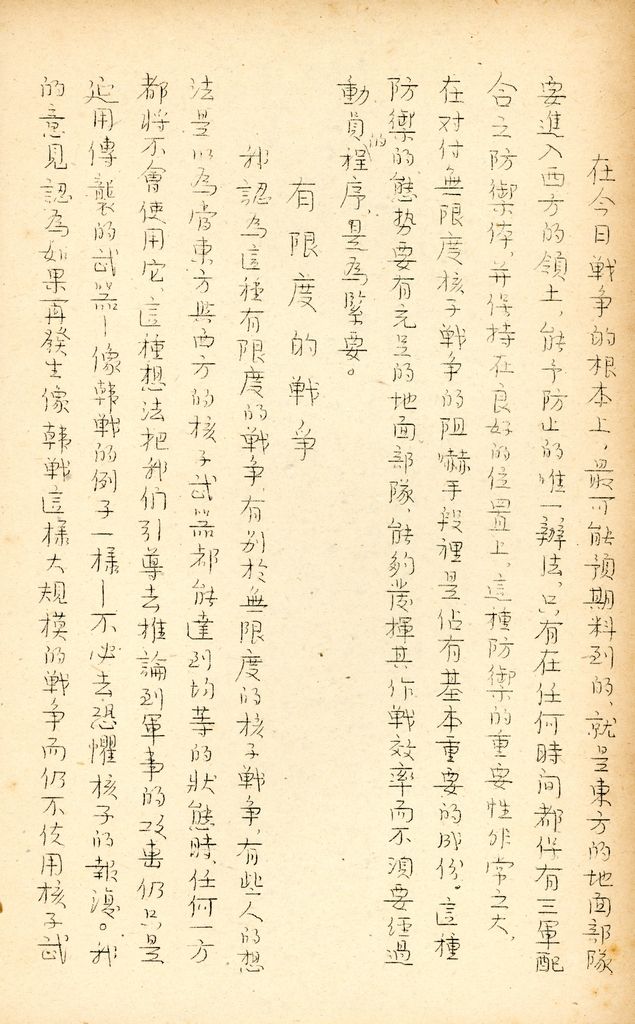 在今日戰争的根本上，最可能預期料到的、就是東方的地面部隊
要進入西方的領土，能予防止的唯一辦法，只有在任何時间都保有三軍配
合之防禦体，并保持在良好的位置上。這種防禦的重要性非常之大，
在对付無限度核子戰争的阻嚇手段裡是佔有基本重要的成份。這種
防禦的態势要有充足的地面部隊、能夠發揮其作戰效率而不須要经過
動員的程序，是為緊要。
有限度的戰争
我認為這種有限度的戰争，有别於無限度的核子戰争，有些人的想
法是以為當東方與西方的核子武器都能達到均等的狀態時、任何一方
都將不會使用它、這種想法把我们引導去推論到軍事的攻击仍只是
运用傳襲的武器—像韓戰的例子一樣—不必去恐懼核子的報復。我
的意見認為如果再發生像韓戰這樣大規模的戰争而仍不使用核子武